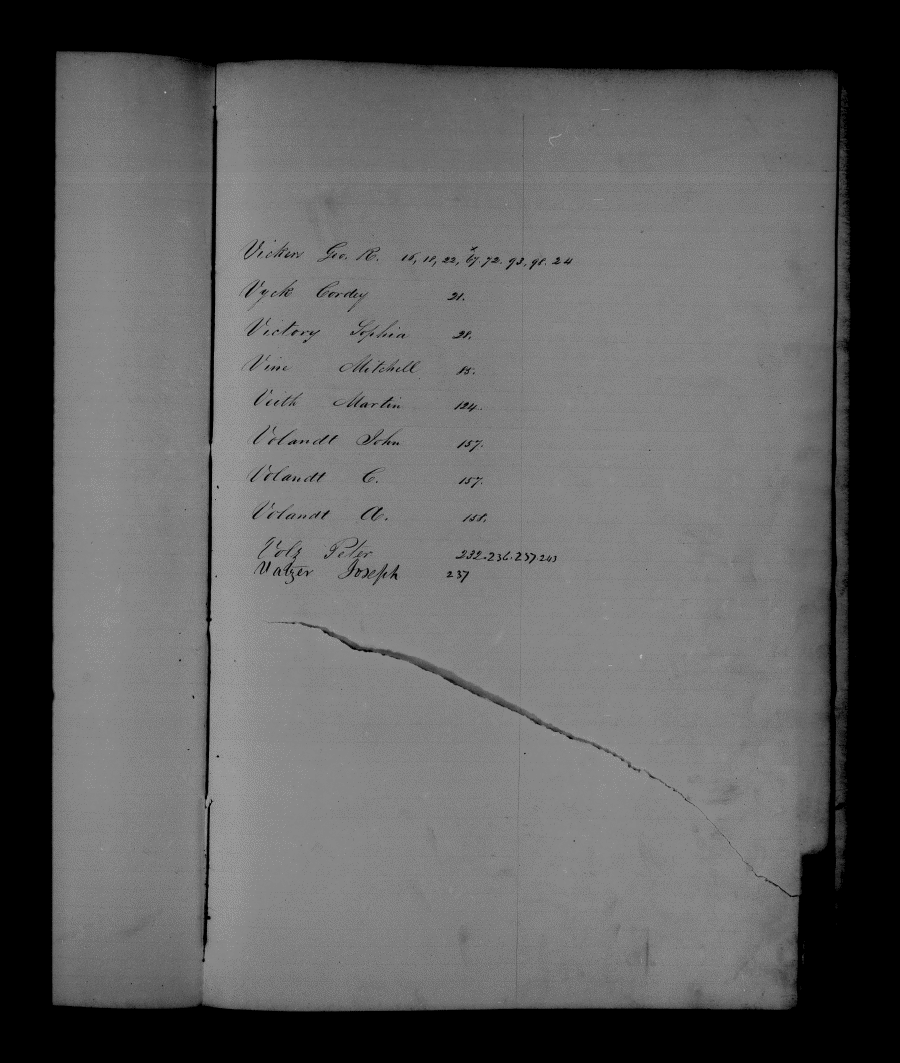 Vickers Geo. R. 15, 18, 22, 67. 72. 93. 98. 24
Vyck Cordey 21.
Victory Sophia 28.
Vine Mitchell 15.
Veith Martin 124.
Volandt John 157.
Volandt C. 157.
Volandt A. 158.
Volz Peter 232. 236. 237. 243
Vatzer Joseph 237